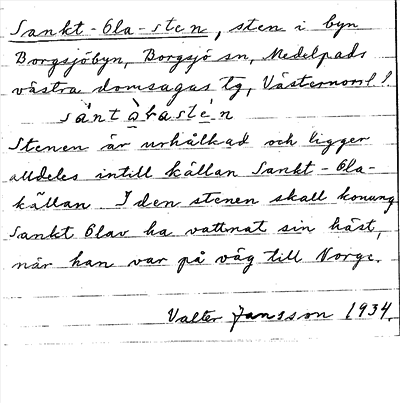 Sankt-Ola-sten, sten i byn
Borgsjöbyn, Borgsjö sn, Medelpads
västra domsagas tg, Västernorrl l.
sàntàɷlastén
Stenen är urhålkad och ligger
alldeles intill källan Sankt-Ola-
källan I den stenen skall konung
Sankt Olav ha vattnat sin häst,
när han var på väg till Norge.
Valter Jansson 1934.